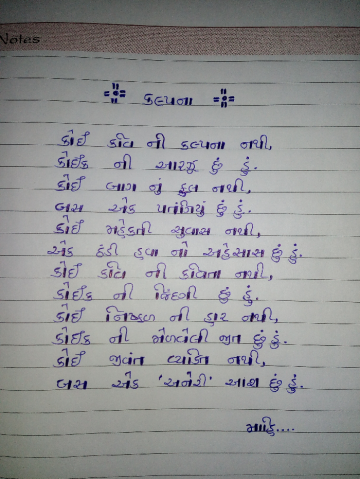 Notes
કલ્પના
કોઈ કવિ ની કલ્પના નથી,
કોઈક ની આરઝુ છું હું.
કોઈ બાગ નું ફૂલ નથી,
બસ એક પતંગિયું છું હું.
કોઈ મહેકતી સુવાસ નથી,
એક ઠંડી હવા નો અહેસાસ છું હું.
કોઈ કવિ ની કવિતા નથી,
કોઈક ની જિંદગી છું હું.
કોઈ નિષ્ફળ ની હાર નથી,
કોઈક ની મેળવેલી જીત છું હું.
કોઈ જીવંત વ્યક્તિ નથી,
બસ એક 'અનેરી' આશ છું હું.
માહિ....